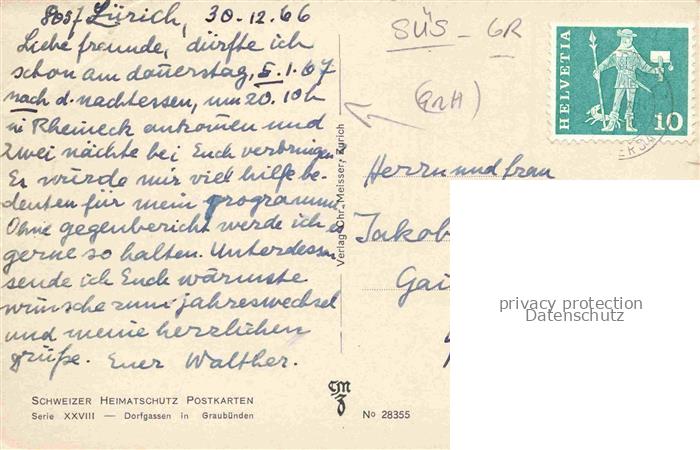 8057 Zürich, 30.12.66
Liebe freunde, dürfte ich
schon am donerstag, 5.1.67
nach d. nachtessen, um 20.10h
in Rheineck ankomen und
zwei nächte bei Euch verbringen.
Er würde mir viel hilfe be-
deuten für mein programm.
Ohne gegenbericht werde ich d
gerne so halten. Unterdessen
sende ich Euch wärmste
wünsche zum jahreswechsel
und meine herzlichen
grüße. Euer Walther.
SCHWEIZER HEIMATSCHUTZ POSTKARTEN
Serie XXVIII — Dorfgassen in Graubünden
Verlag Chr. Meisser, Zürich
CM
Z
No 28355
SÜS - GR
HELVETIA
10
Herrn und frau
Jakob
Gai
privacy protection
Datenschutz